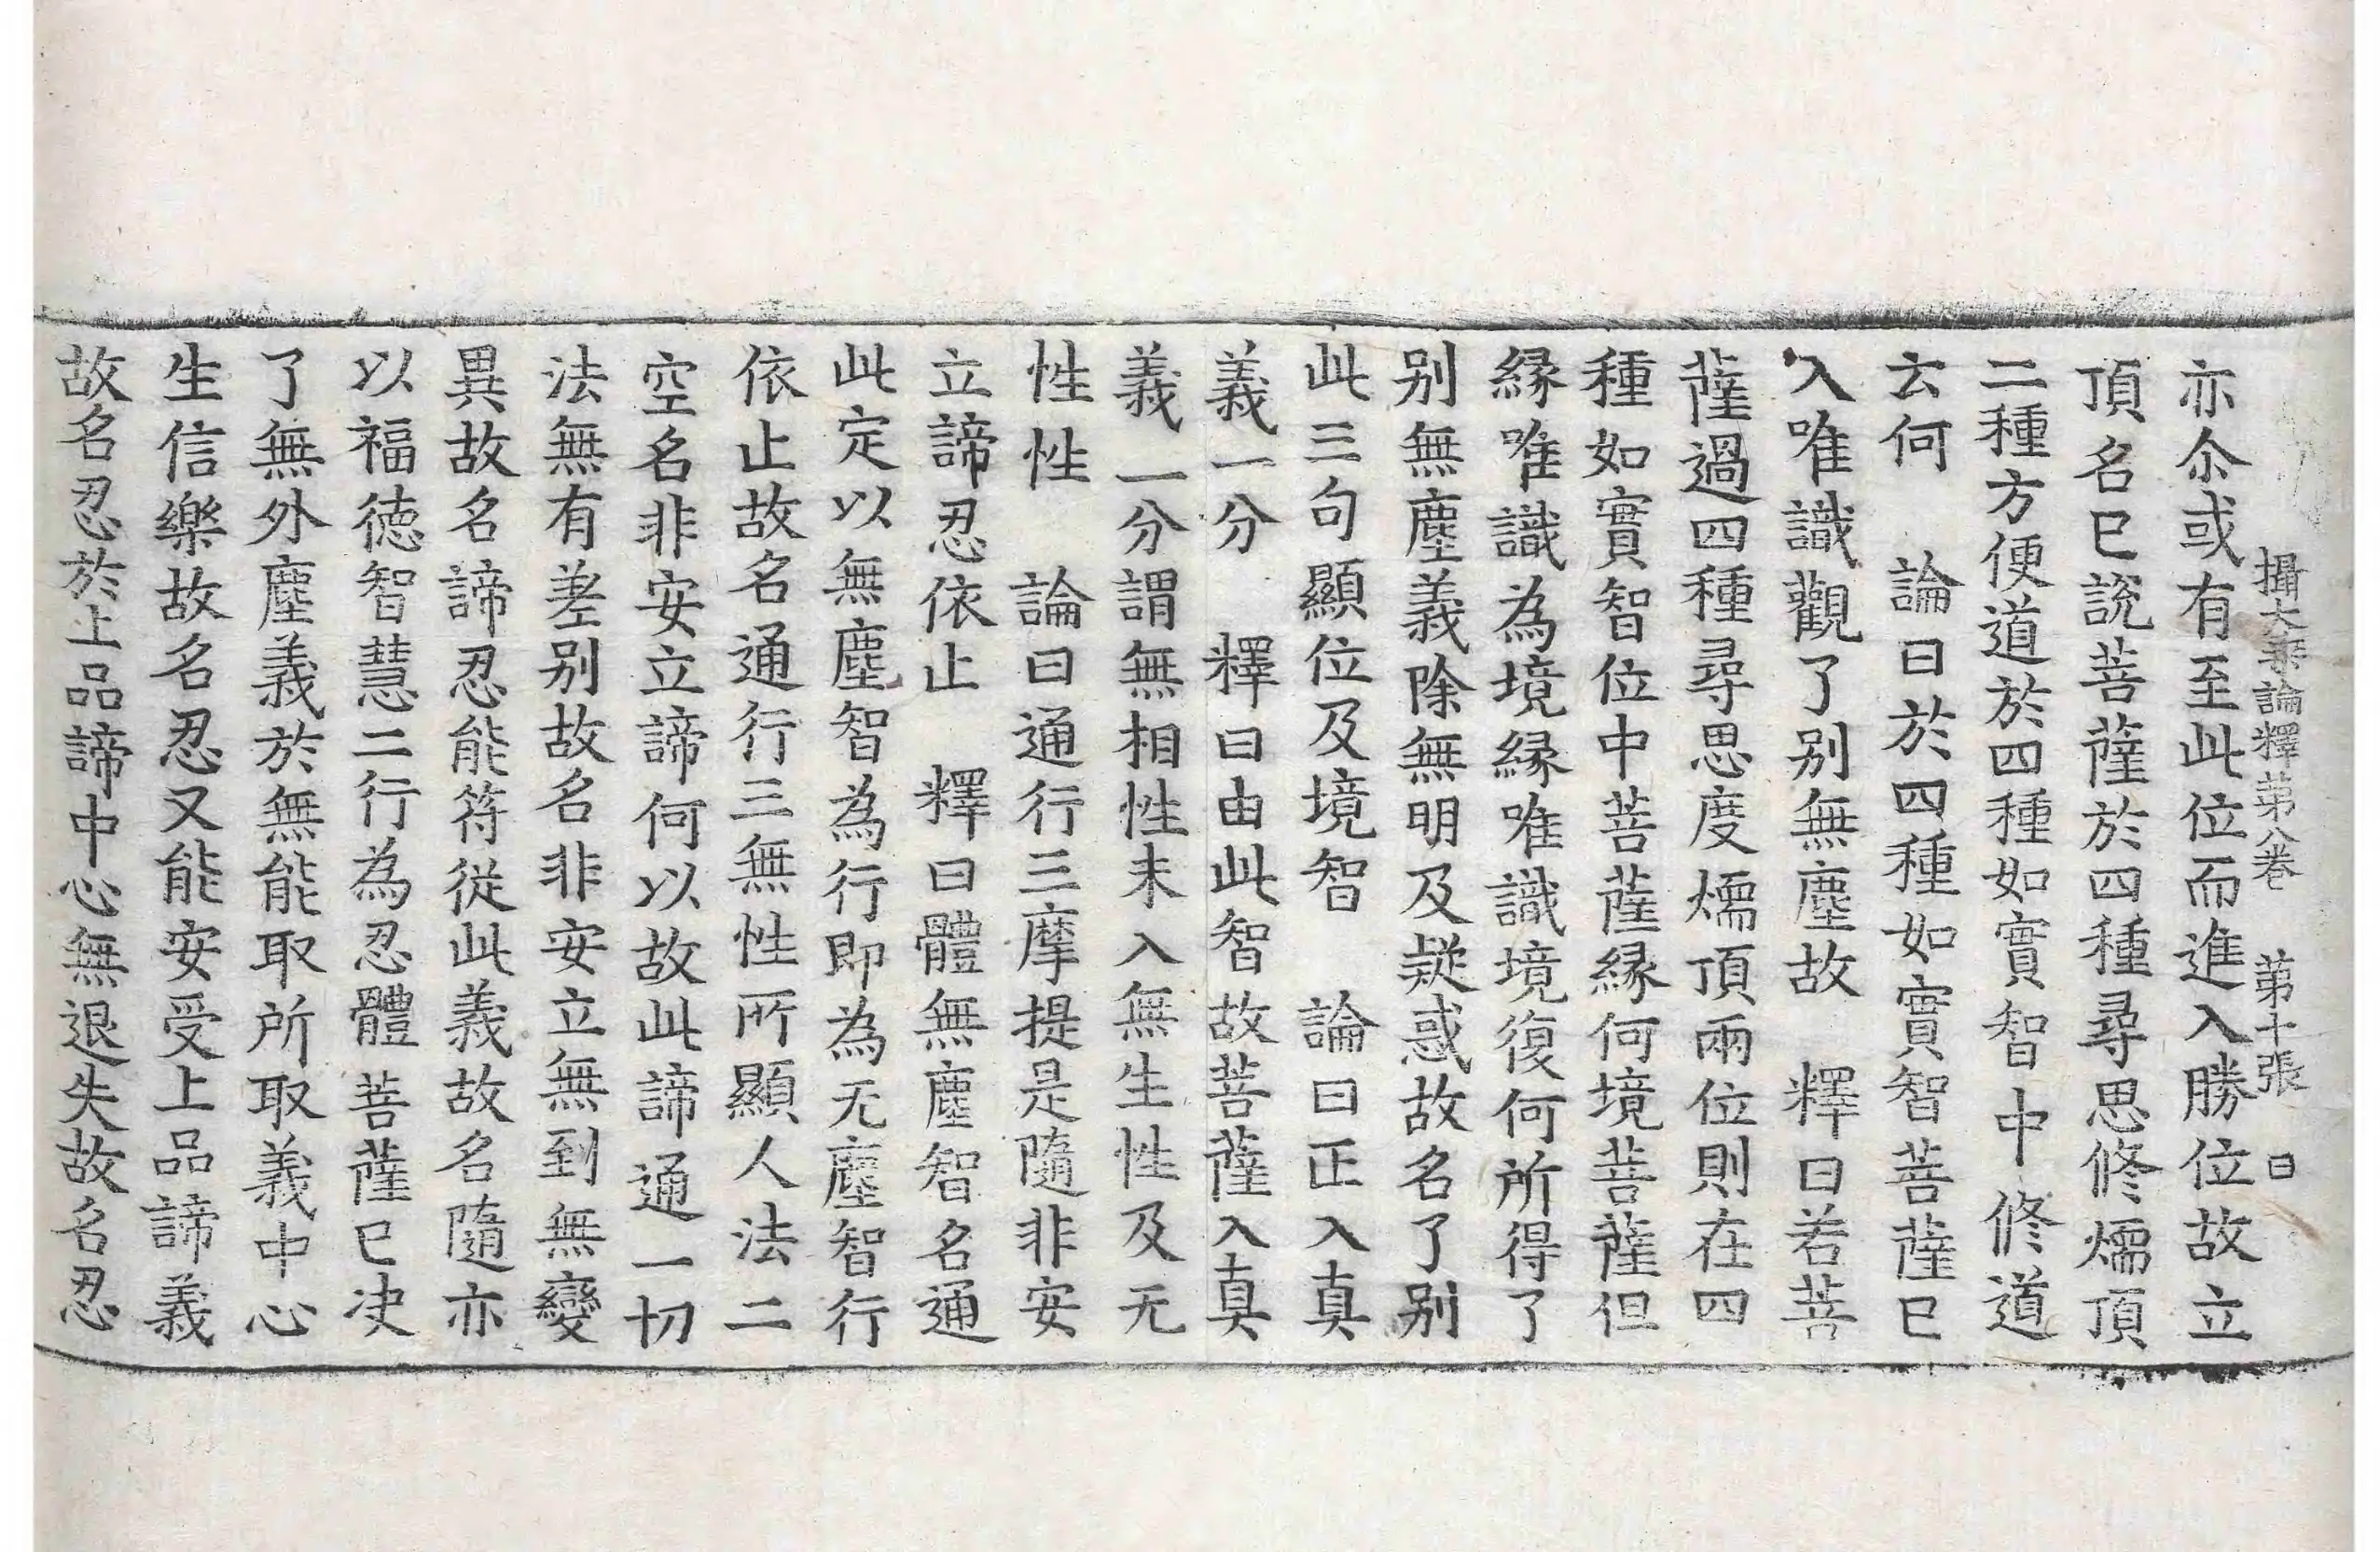 攝大乗論釋苐八巻 苐十張 日
亦尒或有至此位而進入勝位故立
頂名已說菩薩於四種尋思修煗頂
二種方便道於四種如實智中修道
云何 論曰於四種如實智菩薩已
入唯識觀了別無塵故 釋曰若菩
薩過四種尋思度煗頂兩位則在四
種如實智位中菩薩縁何境菩薩但
縁唯識為境縁唯識境復何所得了
別無塵義除無明及疑惑故名了別
此三句顯位及境智 論曰正入真
義一分 釋曰由此智故菩薩入真
義一分謂無相性未入無生性及无
性性 論曰通行三摩提是隨非安
立諦忍依止 釋曰體無塵智名通
此定以無塵智為行即為无塵智行
依止故名通行三無性所顯人法二
空名非安立諦何以故此諦通一切
法無有差別故名非安立無到無變
異故名諦忍能符從此義故名隨亦
以福徳智慧二行為忍體菩薩已决
了無外塵義於無能取所取義中心
生信樂故名忍又能安受上品諦義
故名忍於上品諦中心無退失故名忍